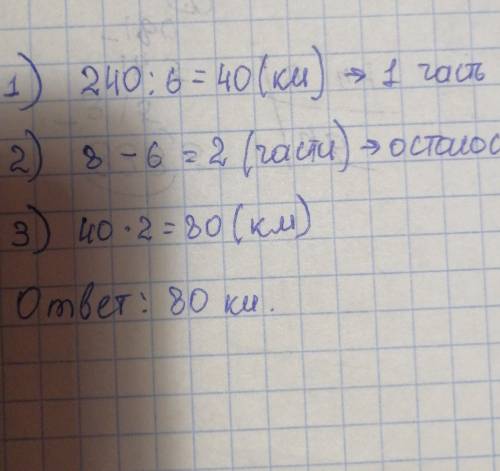 1) 240 : 6 = 40 (км) → 1 часть
2) 8 - 6 = 2 (части) → осталос
3) 40 · 2 = 80 (км)
Ответ: 80 км.